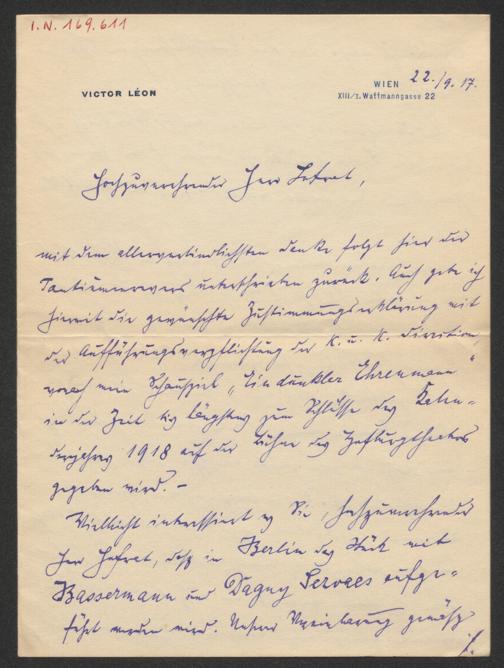 I.N. 169.611
VICTOR LÉON
WIEN 22./9. 17.
XIII/I. Wattmanngasse 22
Hochzuverehrender Herr Hofrat,
mit dem allerverbindlichsten Danke folgt hier der
Tantièmenrevers unterschrieben zurück. Auch gebe ich
hiermit die gewünschte Zustimmungserklärung mit
der Aufführungsverpflichtung der K. u. K. Direktion,
wonach mein Schauspiel „Ein dunkler Ehrenmann“
in der Zeit bis längstens zum Schlusse des Kalen-
derjahres 1918 auf der Bühne des Hofburgtheaters
gegeben wird. –
Vielleicht interessiert es Sie, hochzuverehrender
Herr Hofrat, dass in Berlin das Stück mit
Bassermann und Dagny Servaes aufge-
führt werden wird. Unserer Vereinbarung gemäß